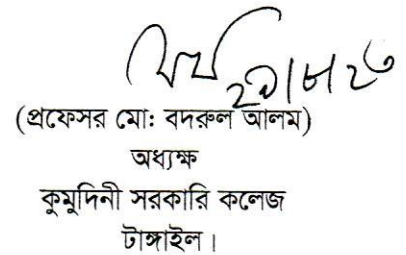 ২৯/৮/২৩
(প্রফেসর মো: বদরুল আলম)
অধ্যক্ষ
কুমুদিনী সরকারি কলেজ
টাঙ্গাইল।